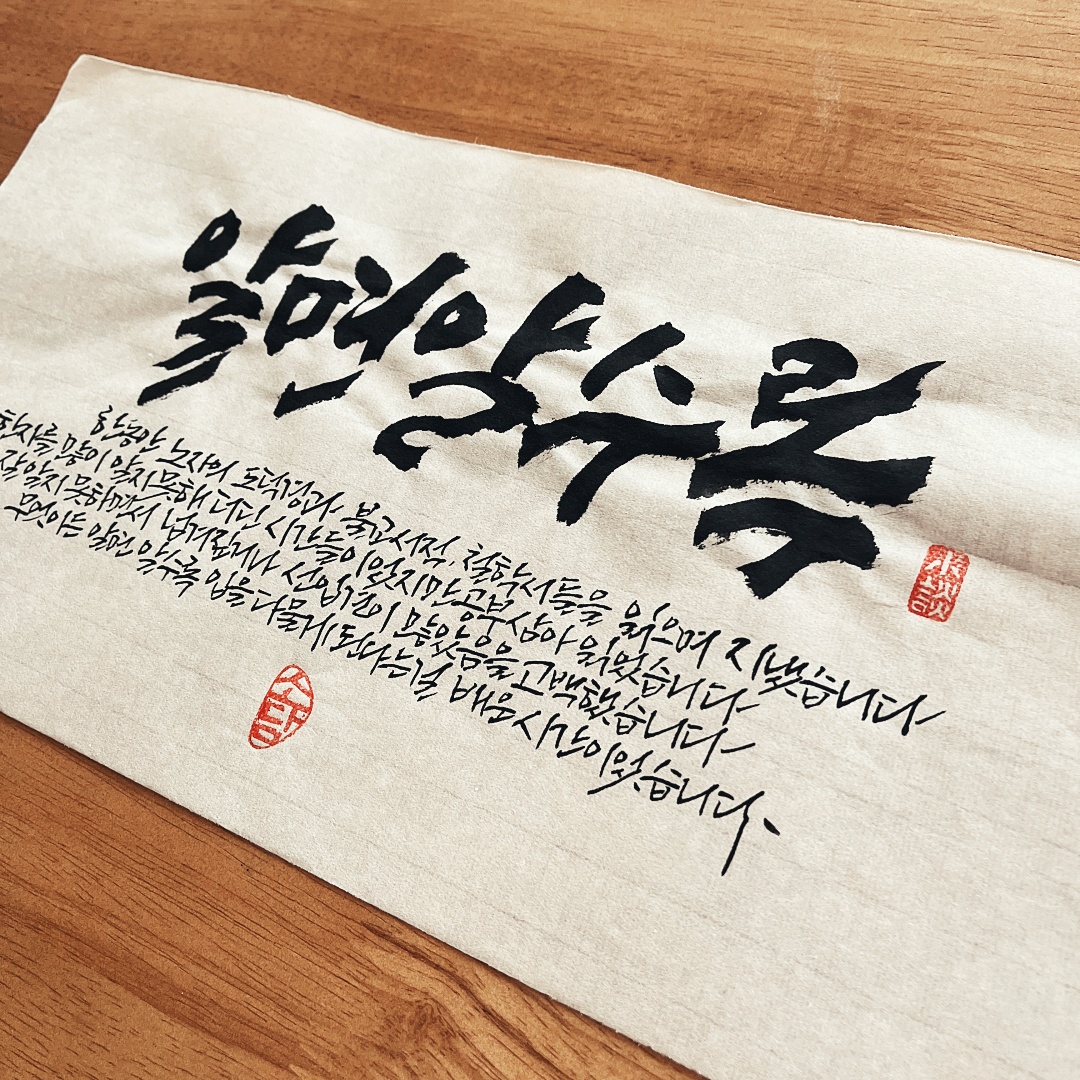 알면알수록
한동안 노자의 도덕경과 불교서적, 철학서들을 읽으며 지냈습니다
한자를 많이 알지못해 더딘 시간들이었지만 공부삼아 읽었습니다
잘 알지 못하면서 넘겨짚거나 선입견이 많았음을 고백했습니다
무엇이든 알면 알수록 입을 다물게 된다는걸 배운 시간이었습니다.
소담